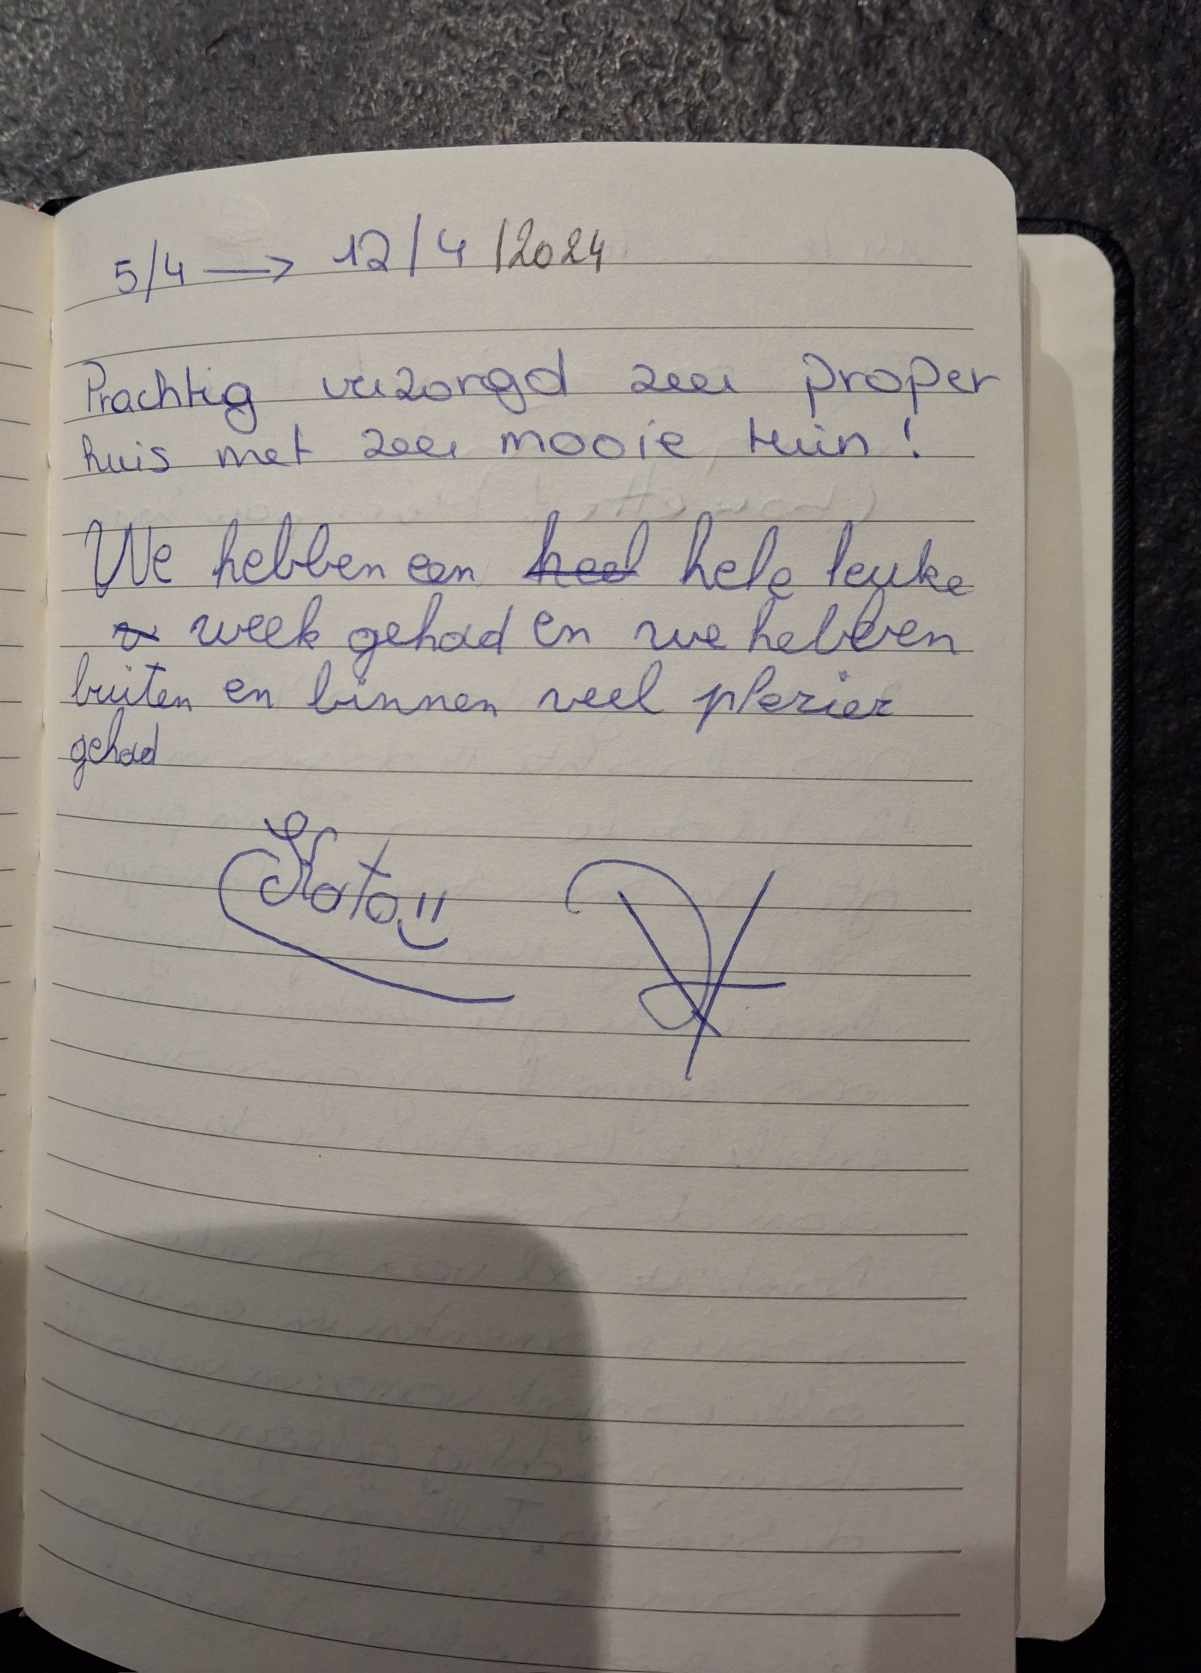 5/4 → 12/4/2024
Prachtig verzorgd zeer proper
huis met zeer mooie tuin!
We hebben een heel hele leuke
week gehad en we hebben
buiten en binnen veel plezier
gehad